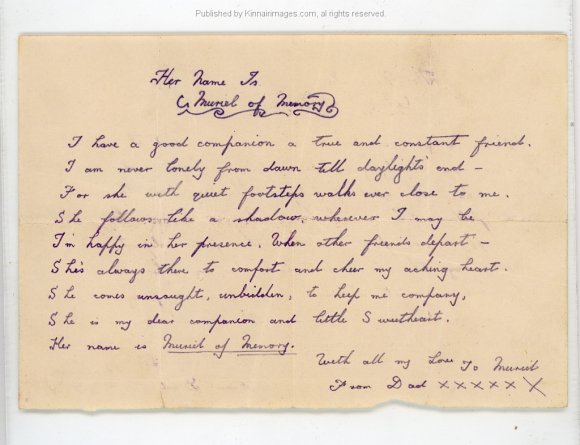 Published by Kinnaimages.com, all rights reserved.
Her Name Is
Muriel of Memory
I have a good companion a true and constant friend.
I am never lonely from dawn till daylights' end —
For she with quiet footsteps walks ever close to me.
She follows like a shadow, wherever I may be
I'm happy in her presence. When other friends depart —
She's always there to comfort and cheer my aching heart.
She comes unsaught, unbidden, to keep me company,
She is my dear companion and little Sweetheart.
Her name is Muriel of Memory.
With all my Love To Muriel
From Dad x x x x x X